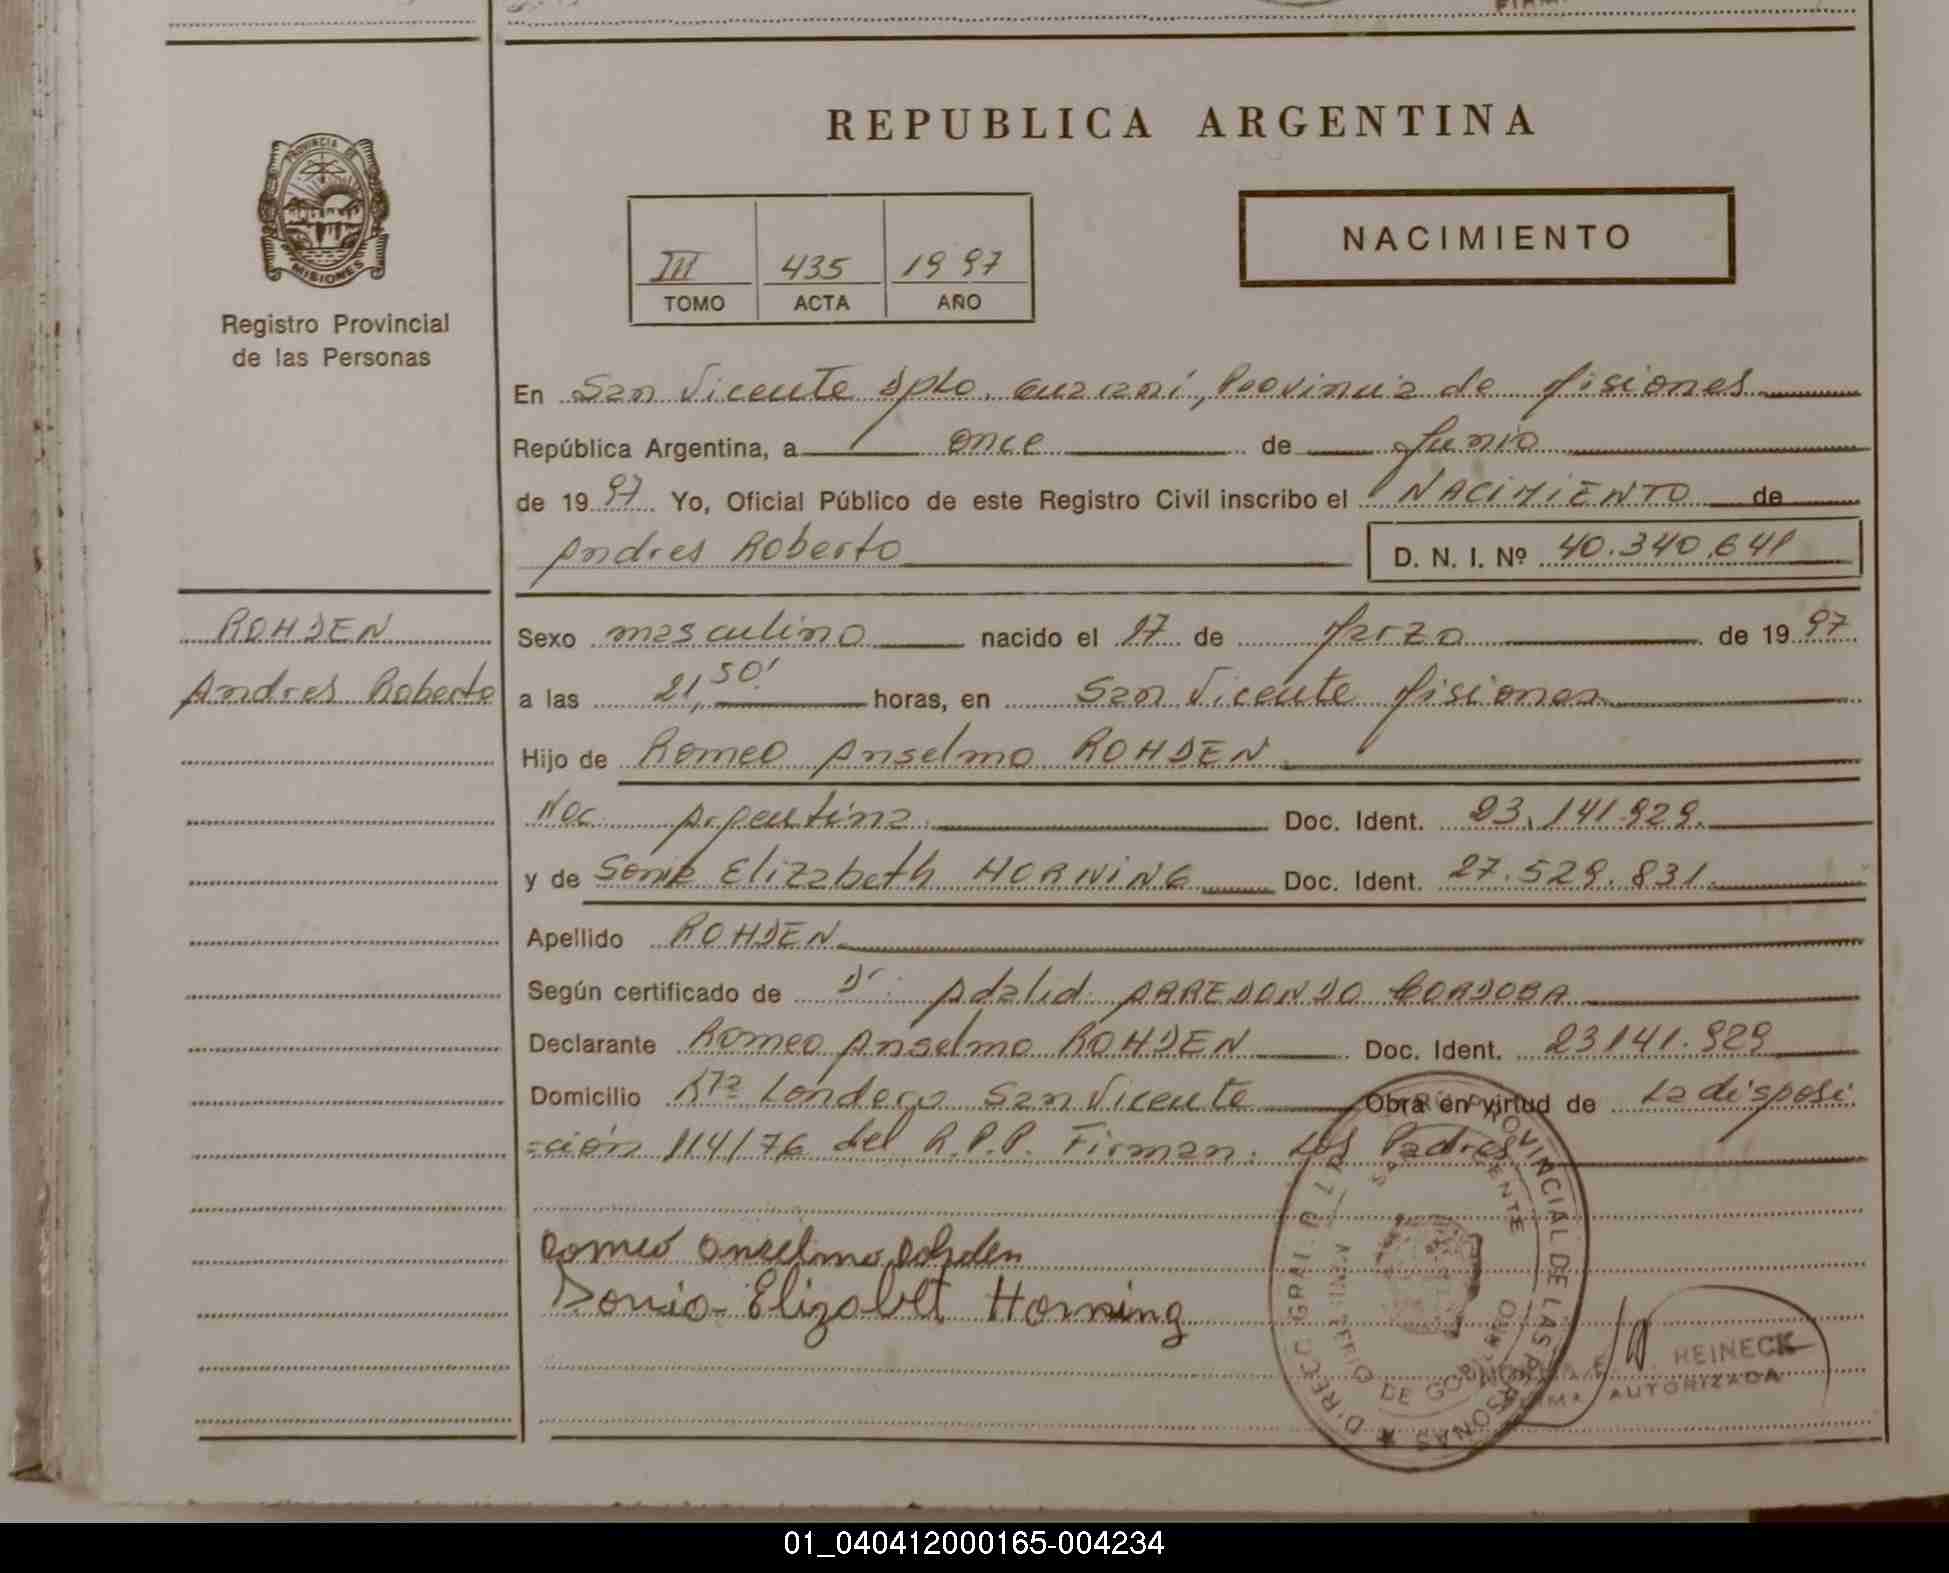 REPUBLICA ARGENTINA
PROVINCIA DE
MISIONES
Registro Provincial
de las Personas
NACIMIENTO
III 435 1997
TOMO ACTA AÑO
En San Vicente Dpto. Guaraní, Provincia de Misiones
República Argentina, a once de Junio
de 1997 Yo, Oficial Público de este Registro Civil inscribo el NACIMIENTO de
Andres Roberto D. N. I. Nº 40.340.641
ROHDEN
Andres Roberto
Sexo masculino nacido el 17 de Marzo de 1997
a las 21,50' horas, en San Vicente Misiones
Hijo de Romeo Anselmo ROHDEN
Nac. Argentina Doc. Ident. 23.141.929.
y de Sonia Elizabeth HORNING Doc. Ident. 27.529.831.
Apellido ROHDEN
Según certificado de Dr. Adalid ARREDONDO CORDOBA
Declarante Romeo Anselmo ROHDEN Doc. Ident. 23141.929
Domicilio Londero San Vicente Obra en virtud de La disposi
=ción 114/76 del R.P.P. Firman: Los Padres
Romeo Anselmo Rohden
Sonia Elizabet Horning
PROVINCIAL DE LAS PERSONAS
DE GOBIERNO
REINECK
FIRMA AUTORIZADA
01_040412000165-004234